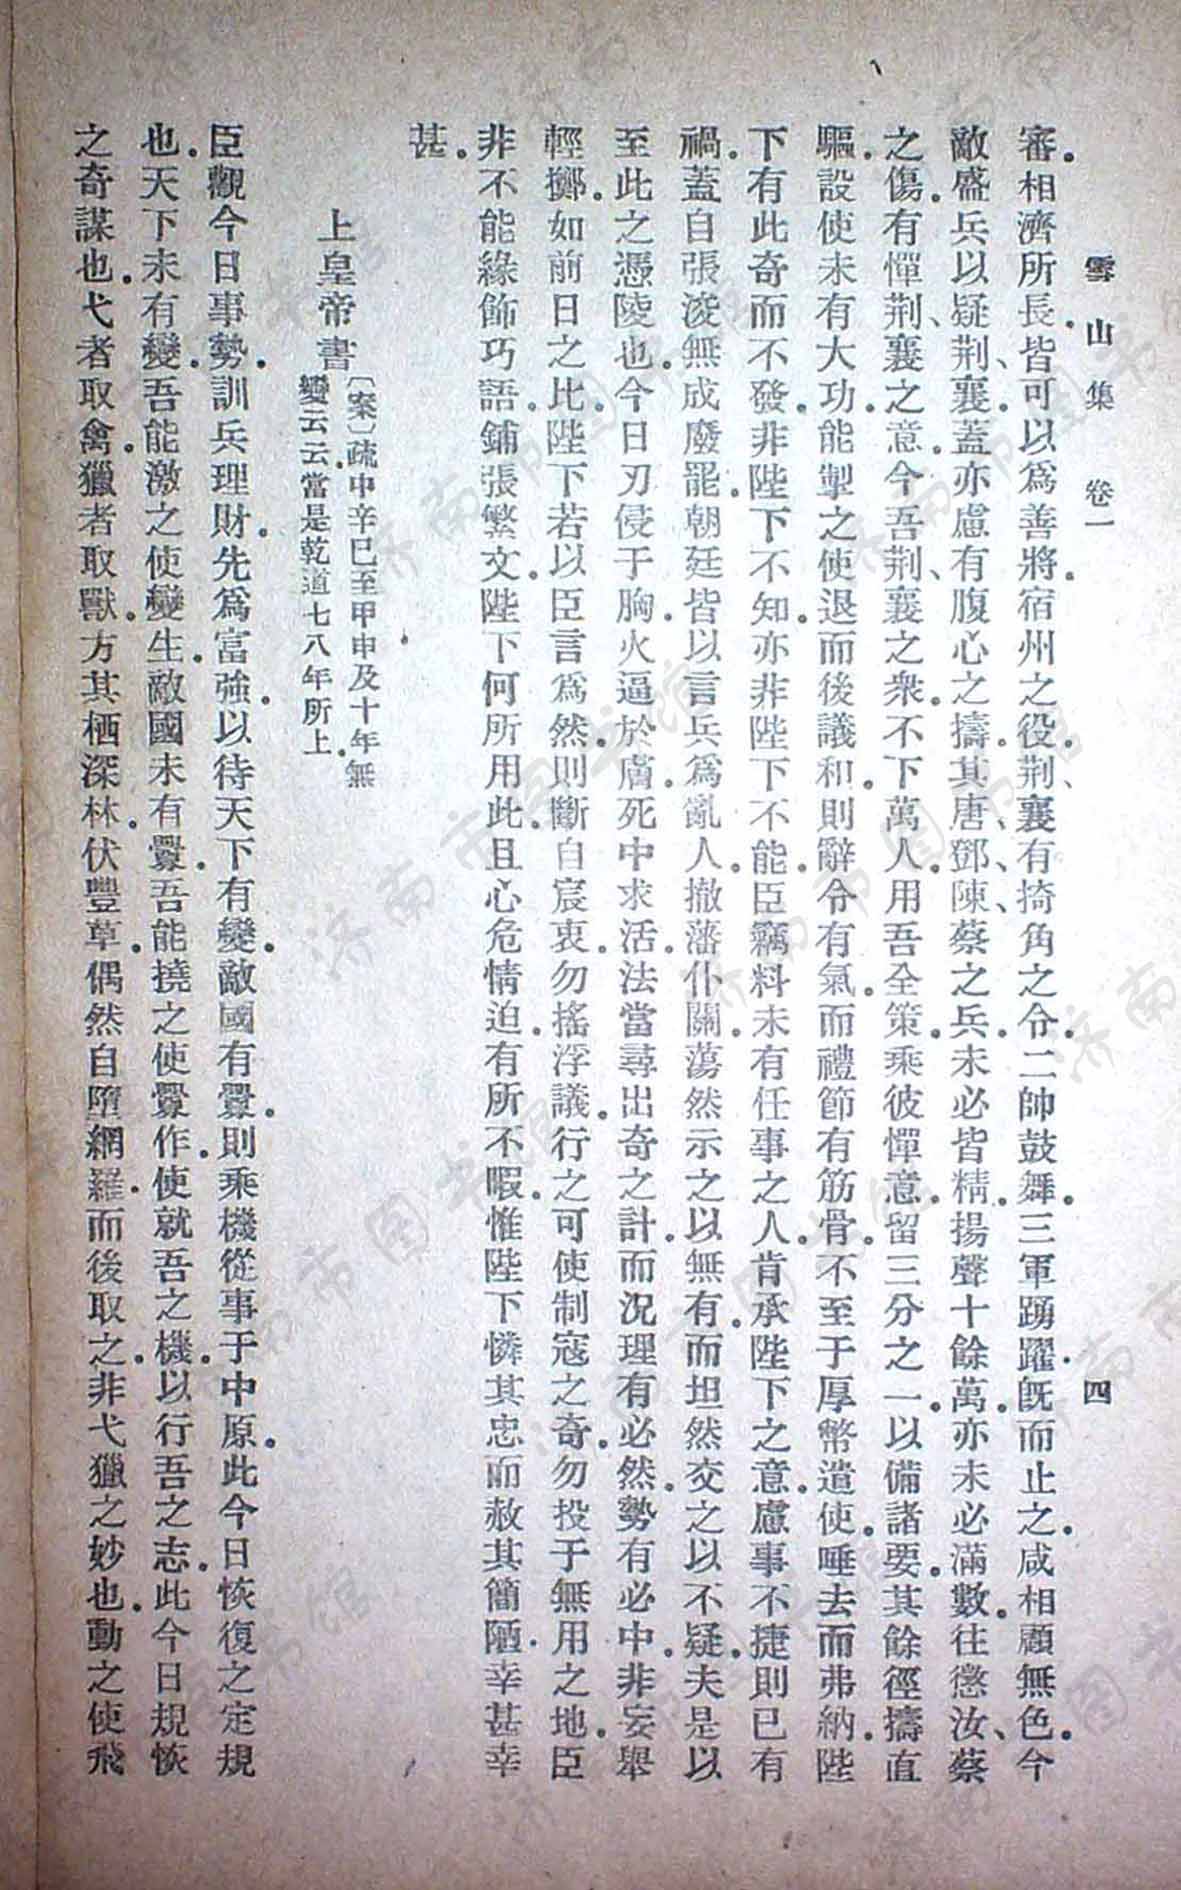 雪山集 卷一 四
審。相濟所長。皆可以爲善將。宿州之役。荆、襄有掎角之令。二帥鼓舞。三軍踴躍。旣而止之。咸相顧無色。今
敵盛兵以疑荆、襄。蓋亦慮有腹心之擣。其唐、鄧、陳、蔡之兵。未必皆精。揚聲十餘萬。亦未必滿數。往懲汝、蔡
之傷。有憚荆、襄之意。今吾荆、襄之衆。不下萬人。用吾全策。乘彼憚意。留三分之一。以備諸要。其餘徑擣直
驅。設使未有大功。能掣之使退。而後議和。則辭令有氣。而禮節有筋骨。不至于厚幣遣使。唾去而弗納。陛
下有此奇而不發。非陛下不知。亦非陛下不能。臣竊料未有任事之人。肯承陛下之意。慮事不捷。則已有
禍。蓋自張浚無成廢罷。朝廷皆以言兵爲亂人。撤藩仆關。蕩然示之以無有。而坦然交之以不疑。夫是以
至此之憑陵也。今日刃侵于胸。火逼於膚。死中求活。法當尋出奇之計。而況理有必然。勢有必中。非妄舉
輕擲。如前日之比。陛下若以臣言爲然。則斷自宸衷。勿搖浮議。行之可使制寇之奇。勿投于無用之地。臣
非不能緣飾巧語。鋪張繁文。陛下何所用此。且心危情迫。有所不暇。惟陛下憐其忠而赦其簡陋。幸甚幸
甚。
上皇帝書
〔案〕疏中辛巳至甲申及十年。無
變云云。當是乾道七八年所上。
臣觀今日事勢。訓兵理財。先爲富強。以待天下有變。敵國有釁。則乘機從事于中原。此今日恢復之定規
也。天下未有變。吾能激之使變生。敵國未有釁。吾能撓之使釁作。使就吾之機。以行吾之志。此今日規恢
之奇謀也。弋者取禽。獵者取獸。方其栖深林。伏豐草。偶然自墮網羅。而後取之。非弋獵之妙也。動之使飛
济南市图书馆